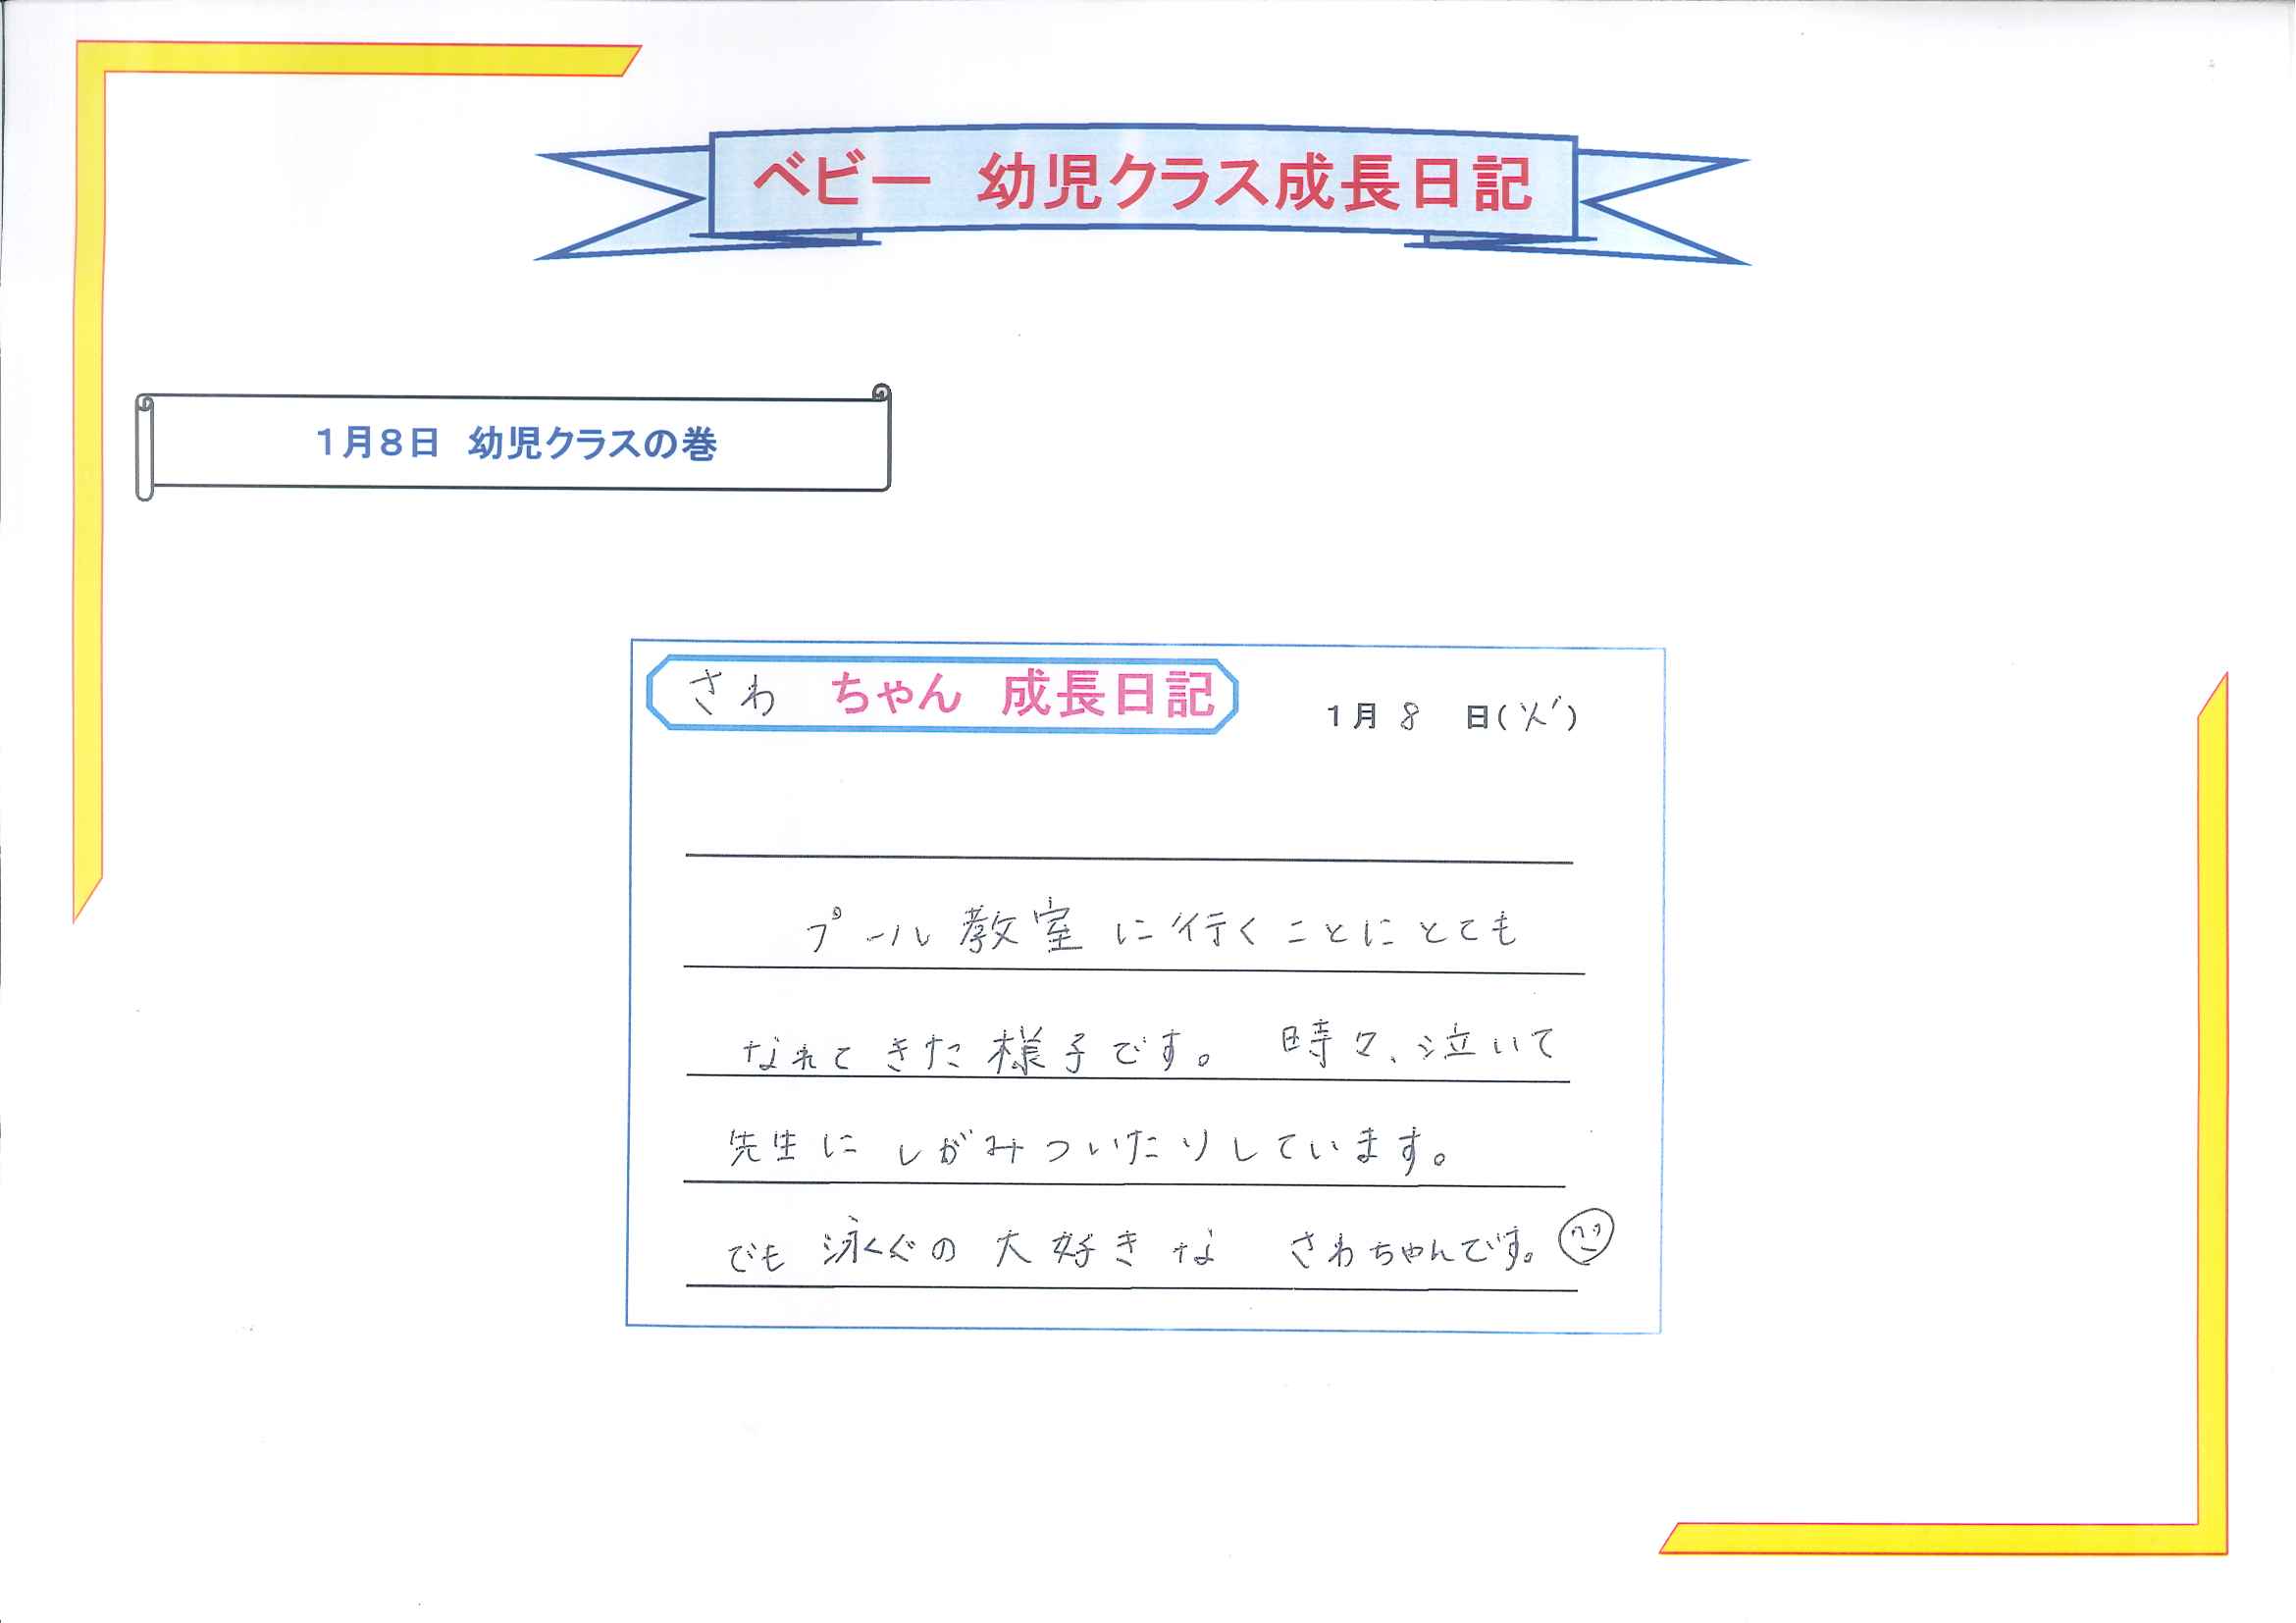 ベビー　幼児クラス成長日記
１月８日　幼児クラスの巻
さわ　ちゃん　成長日記　1月 8 日(火)
プール教室に行くことにとても
なれてきた様子です。　時々、泣いて
先生に しがみついたりしています。
でも 泳ぐの大好きな　さわちゃんです。